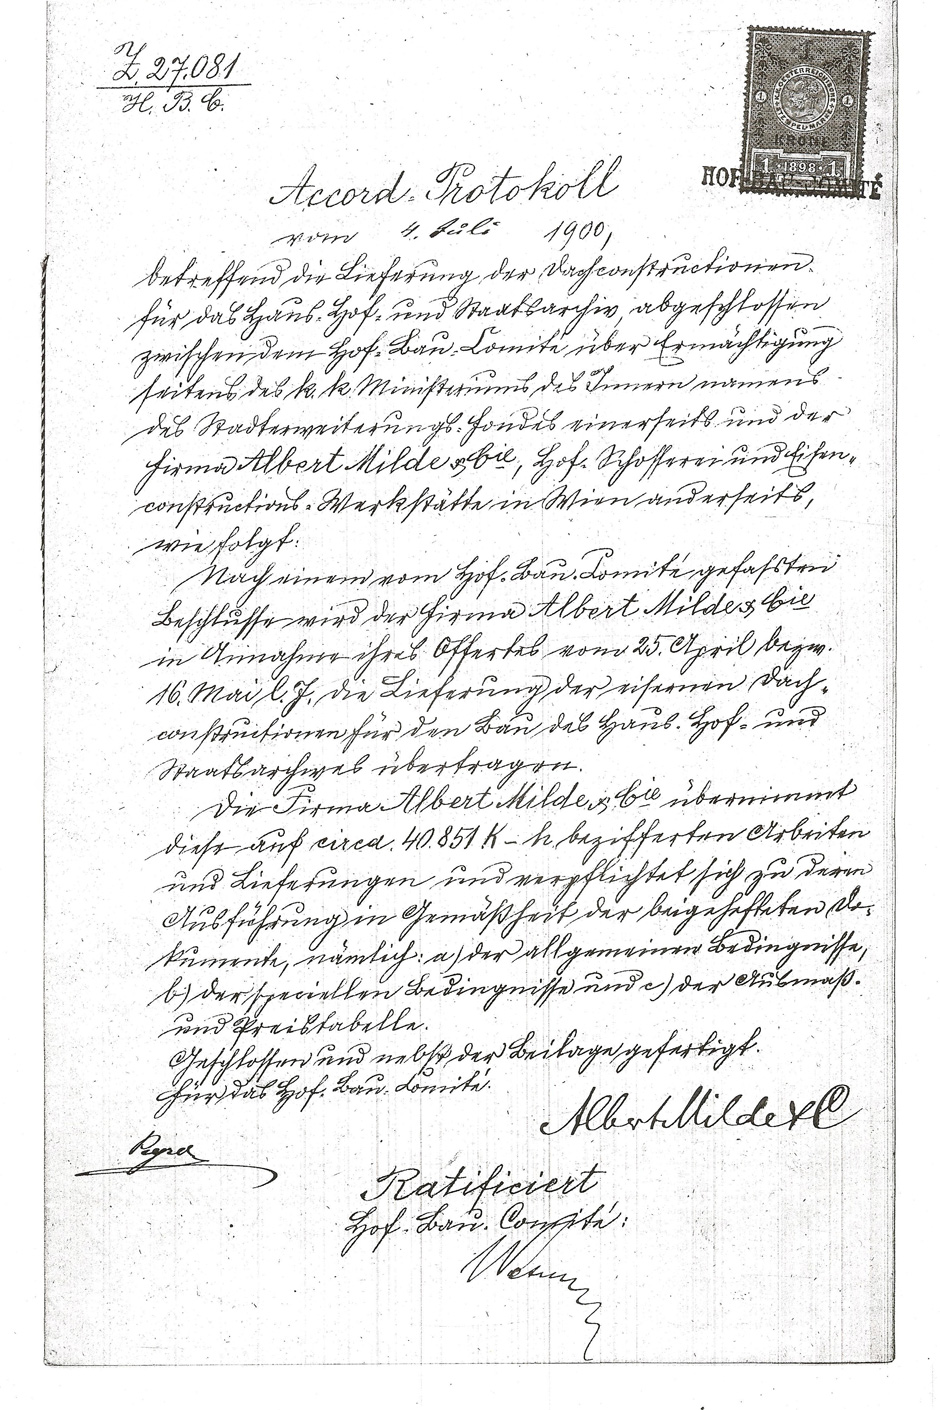 Z. 27.081
H. B. C.
KAIS. KÖN. OESTERREICHISCHE STEMPELMARKE
1 1
KRONE
1 1898 1
HOF-BAU-COMITÉ
Accord-Protokoll
vom 4. Juli 1900,
betreffend die Lieferung der Dachconstructionen
für das Haus-Hof- und Staatsarchiv, abgeschlossen
zwischen dem Hof-Bau-Comité über Ermächtigung
seitens des k. k. Ministeriums des Innern namens
des Stadterweiterungs-Fondes einerseits und der
Firma Albert Milde & Cie, Hof-Schlosserei und Eisen-
constructions-Werkstätte in Wien anderseits,
wie folgt:
Nach einem vom Hof-Bau-Comité gefassten
Beschlusse wird der Firma Albert Milde & Cie
in Annahme ihres Offertes vom 25. April bezw.
16. Mai l. J. die Lieferung der eisernen Dach-
constructionen für den Bau des Haus-Hof- und
Staatsarchives übertragen.
Die Firma Albert Milde & Cie übernimmt
diese auf circa 40.851 K – h bezifferten Arbeiten
und Lieferungen und verpflichtet sich zu deren
Ausführung in Gemäßheit der beigehefteten Do-
kumente, nämlich: a) der allgemeinen Bedingnisse,
b) der speciellen Bedingnisse und c) der Ausmaß-
und Preistabelle.
Geschlossen und nebst der Beilage gefertigt.
Für das Hof-Bau-Comité:
Albert Milde & C
Ratificiert
Hof-Bau-Comité: